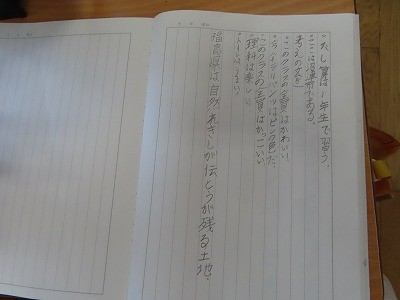 。たし算は1年生で習う。
。ここは である。
考えの文を
。このクラスの全員はかわいい。
はピンク色だ。
。このクラスの全員はかっこいい
。理科は楽しい。
福島県は自然、れきしが伝とうが残る土地。